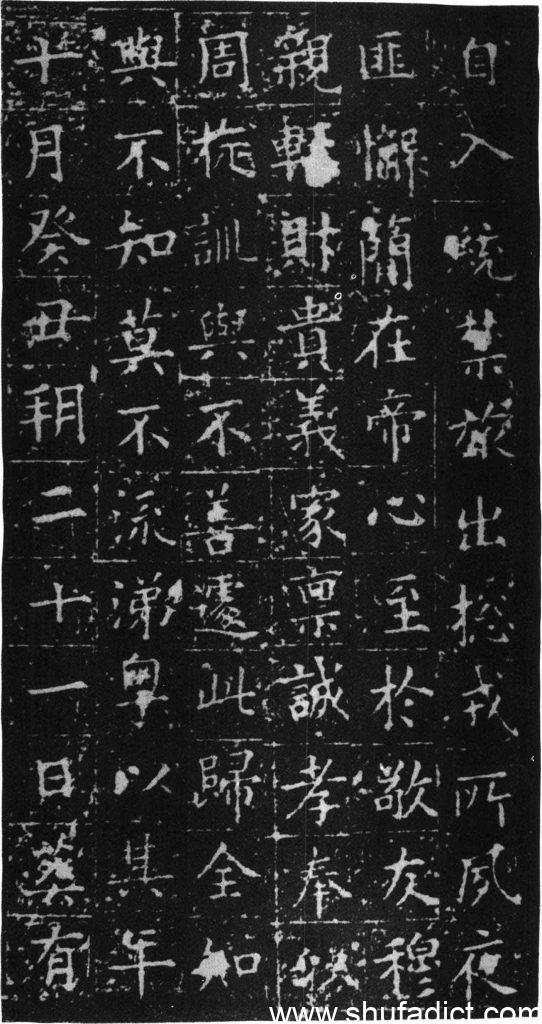 自入統禁旅出捴戎所夙夜
匪懈簡在帝心至於敬友穆
親輕財貴義家稟誠孝奉以
周旋訓與不善遽此歸全知
與不知莫不流涕粤以其年
十月癸丑朔二十一日葬有
www.shufadict.com